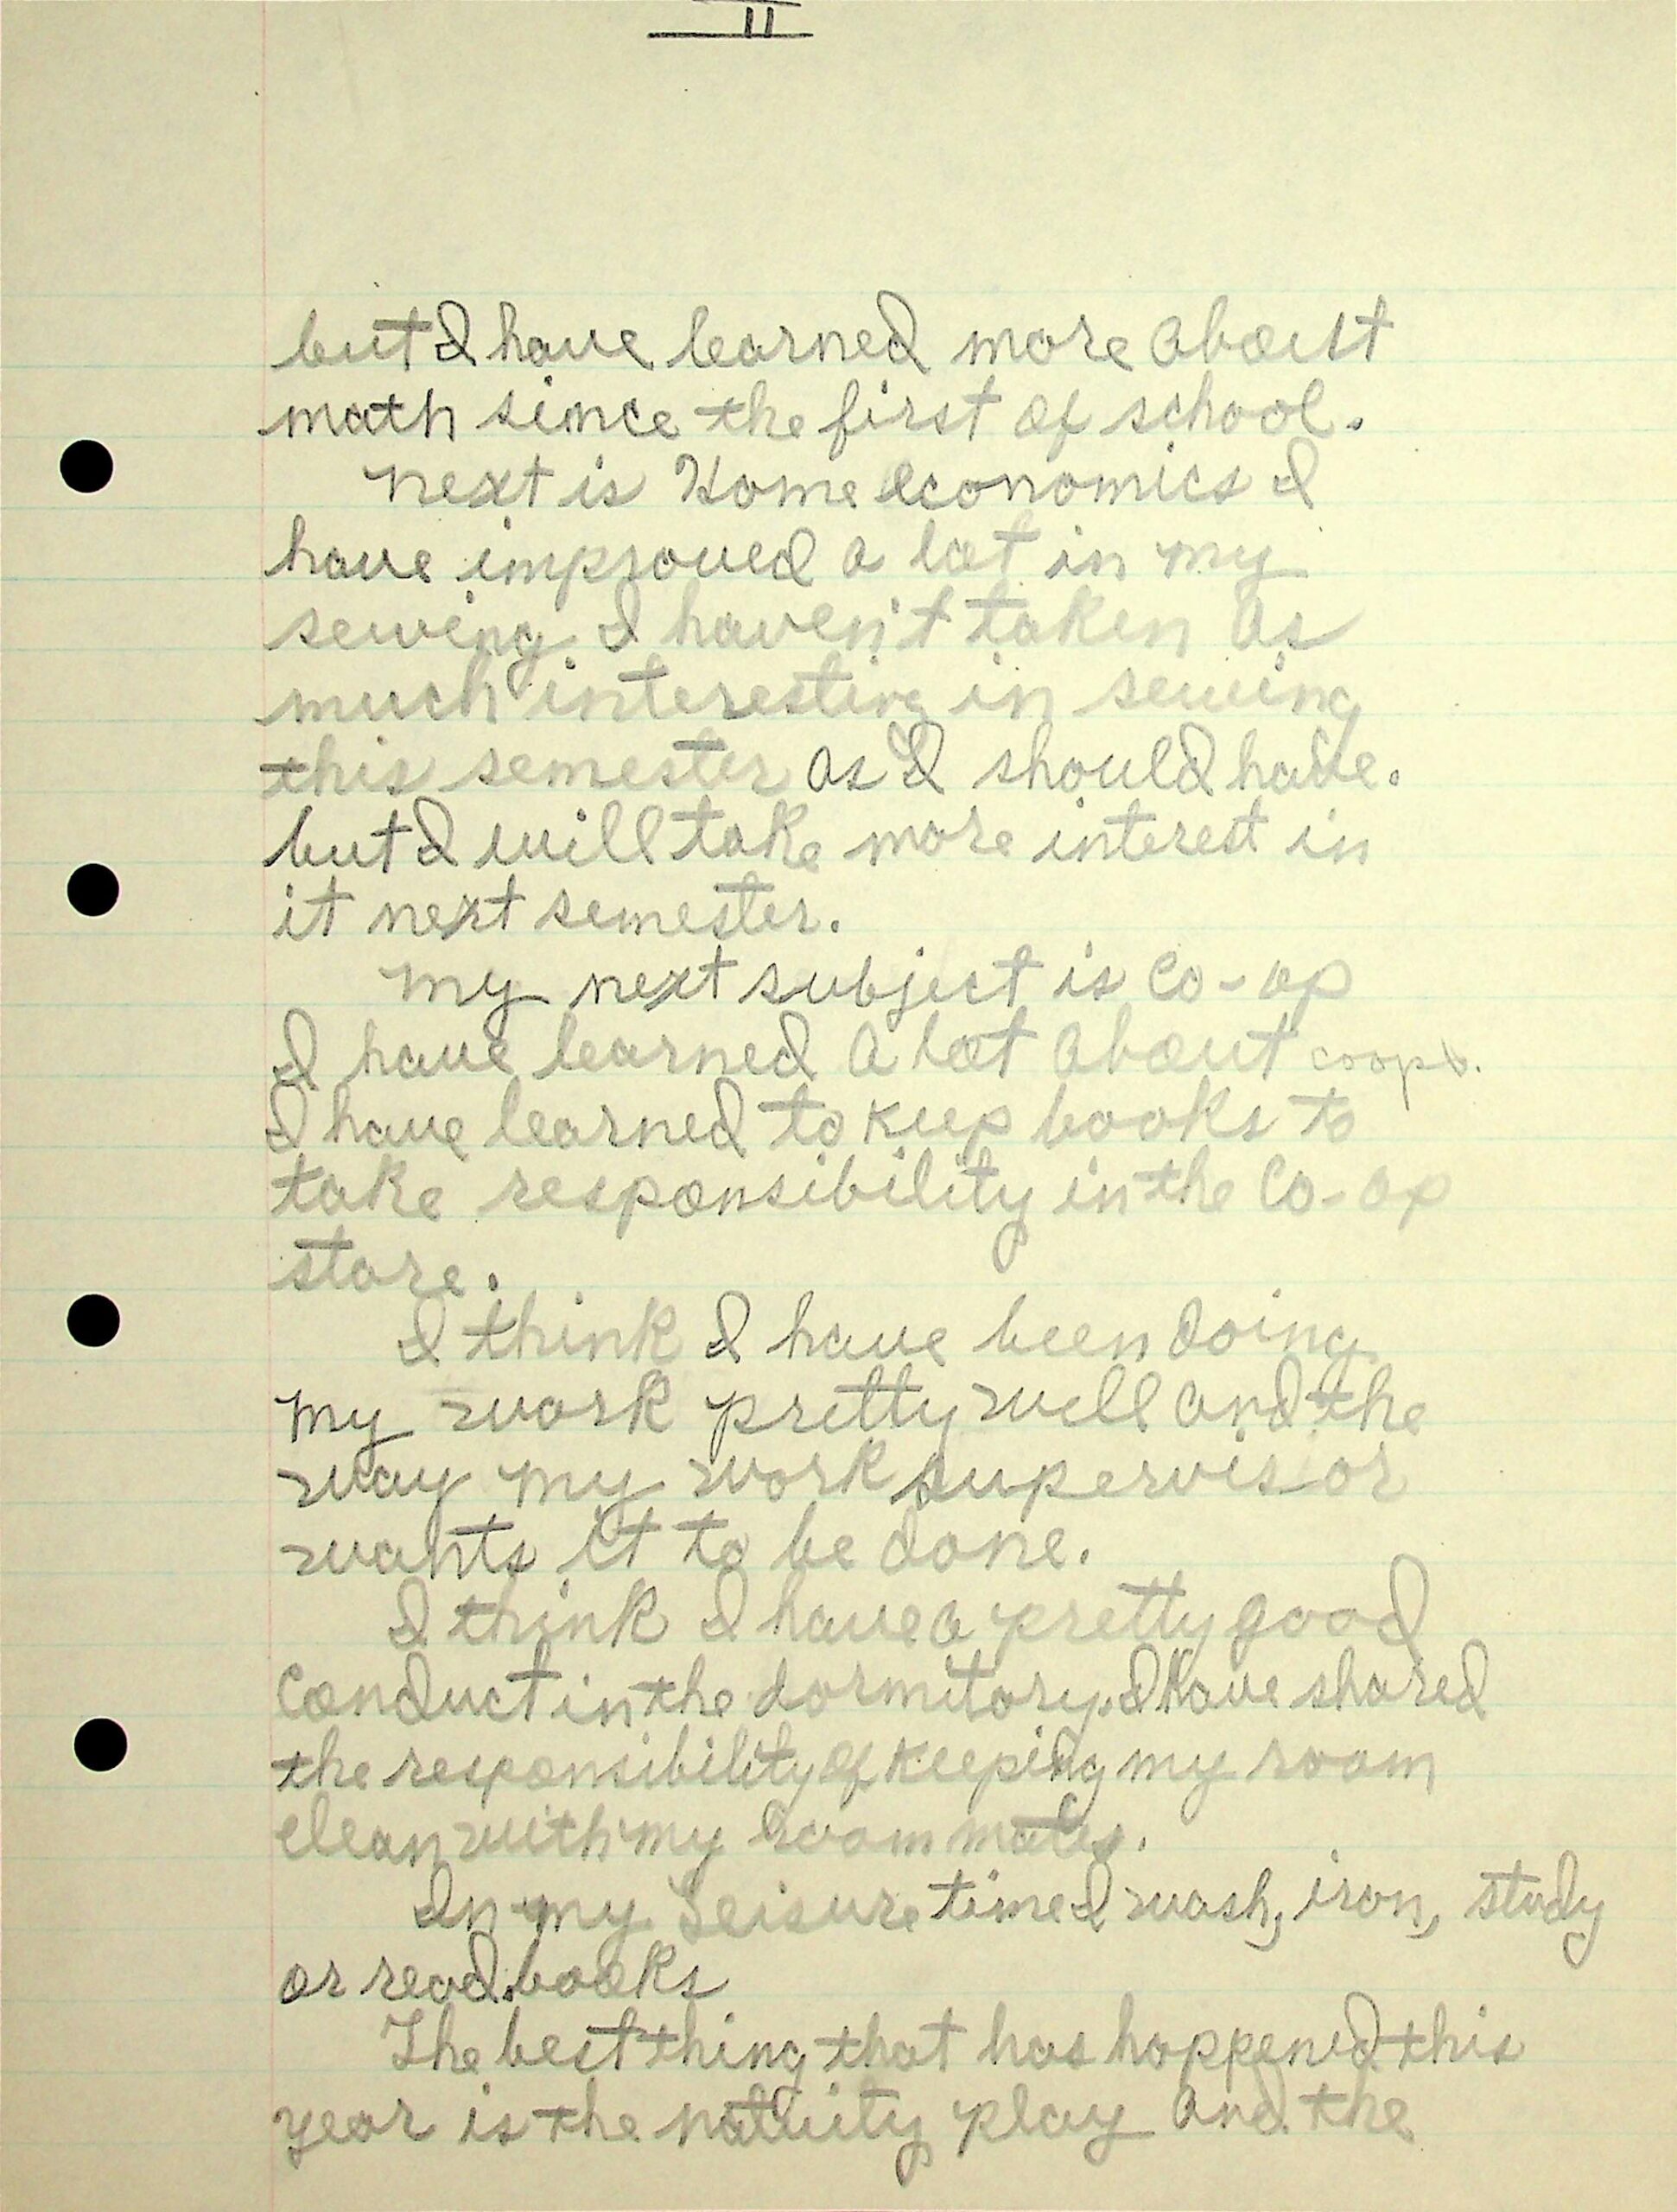 II
but I have learned more about
math since the first of school.
next is Home economics I
have improved a lot in my
sewing. I haven't taken as
much interesting in sewing
this semester as I should have.
but I will take more interest in
it next semester.
My next subject is Co-op
I have learned a lot about coops.
I have learned to keep books to
take responsibility in the Co-op
store.
I think I have been doing
my work pretty well and the
way my work supervisor
wants it to be done.
I think I have a pretty good
Conduct in the dormitory. I have shared
the responsibility of keeping my room
clean with my room mates.
In my Leisure time I wash, iron, study
or read.books
The best thing that has happened this
year is the nativity play and the